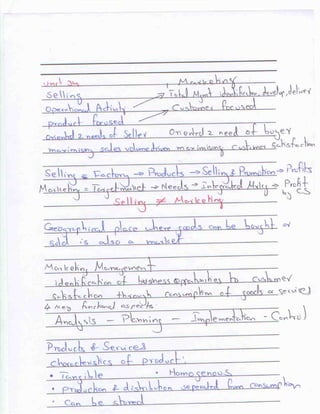 Marketing
Selling
Total Mgmt identification, develop, deliver
Operational Activity
Customer focused
product focused
Oriented 2 needs of Seller
Oriented 2 need of buyer
maximising sales volume driven
maximising customer satisfaction
Selling = Factory → Products → Selling & Promotion → Profits
Marketing = Target market → Needs → Integrated → Profit by CS
Selling ≠ Marketing
Geographical place where goods can be bought or
sold is also a market
Marketing Management
identification of business opportunities to customer
satisfaction through consumption of goods or service
4 key functional aspects:
Analysis - Planning - Implementation - Control
Products & Services
characteristics of product:
• Tangible • Homogenous
• Production & distribution seperated from consumption
• Can be stored